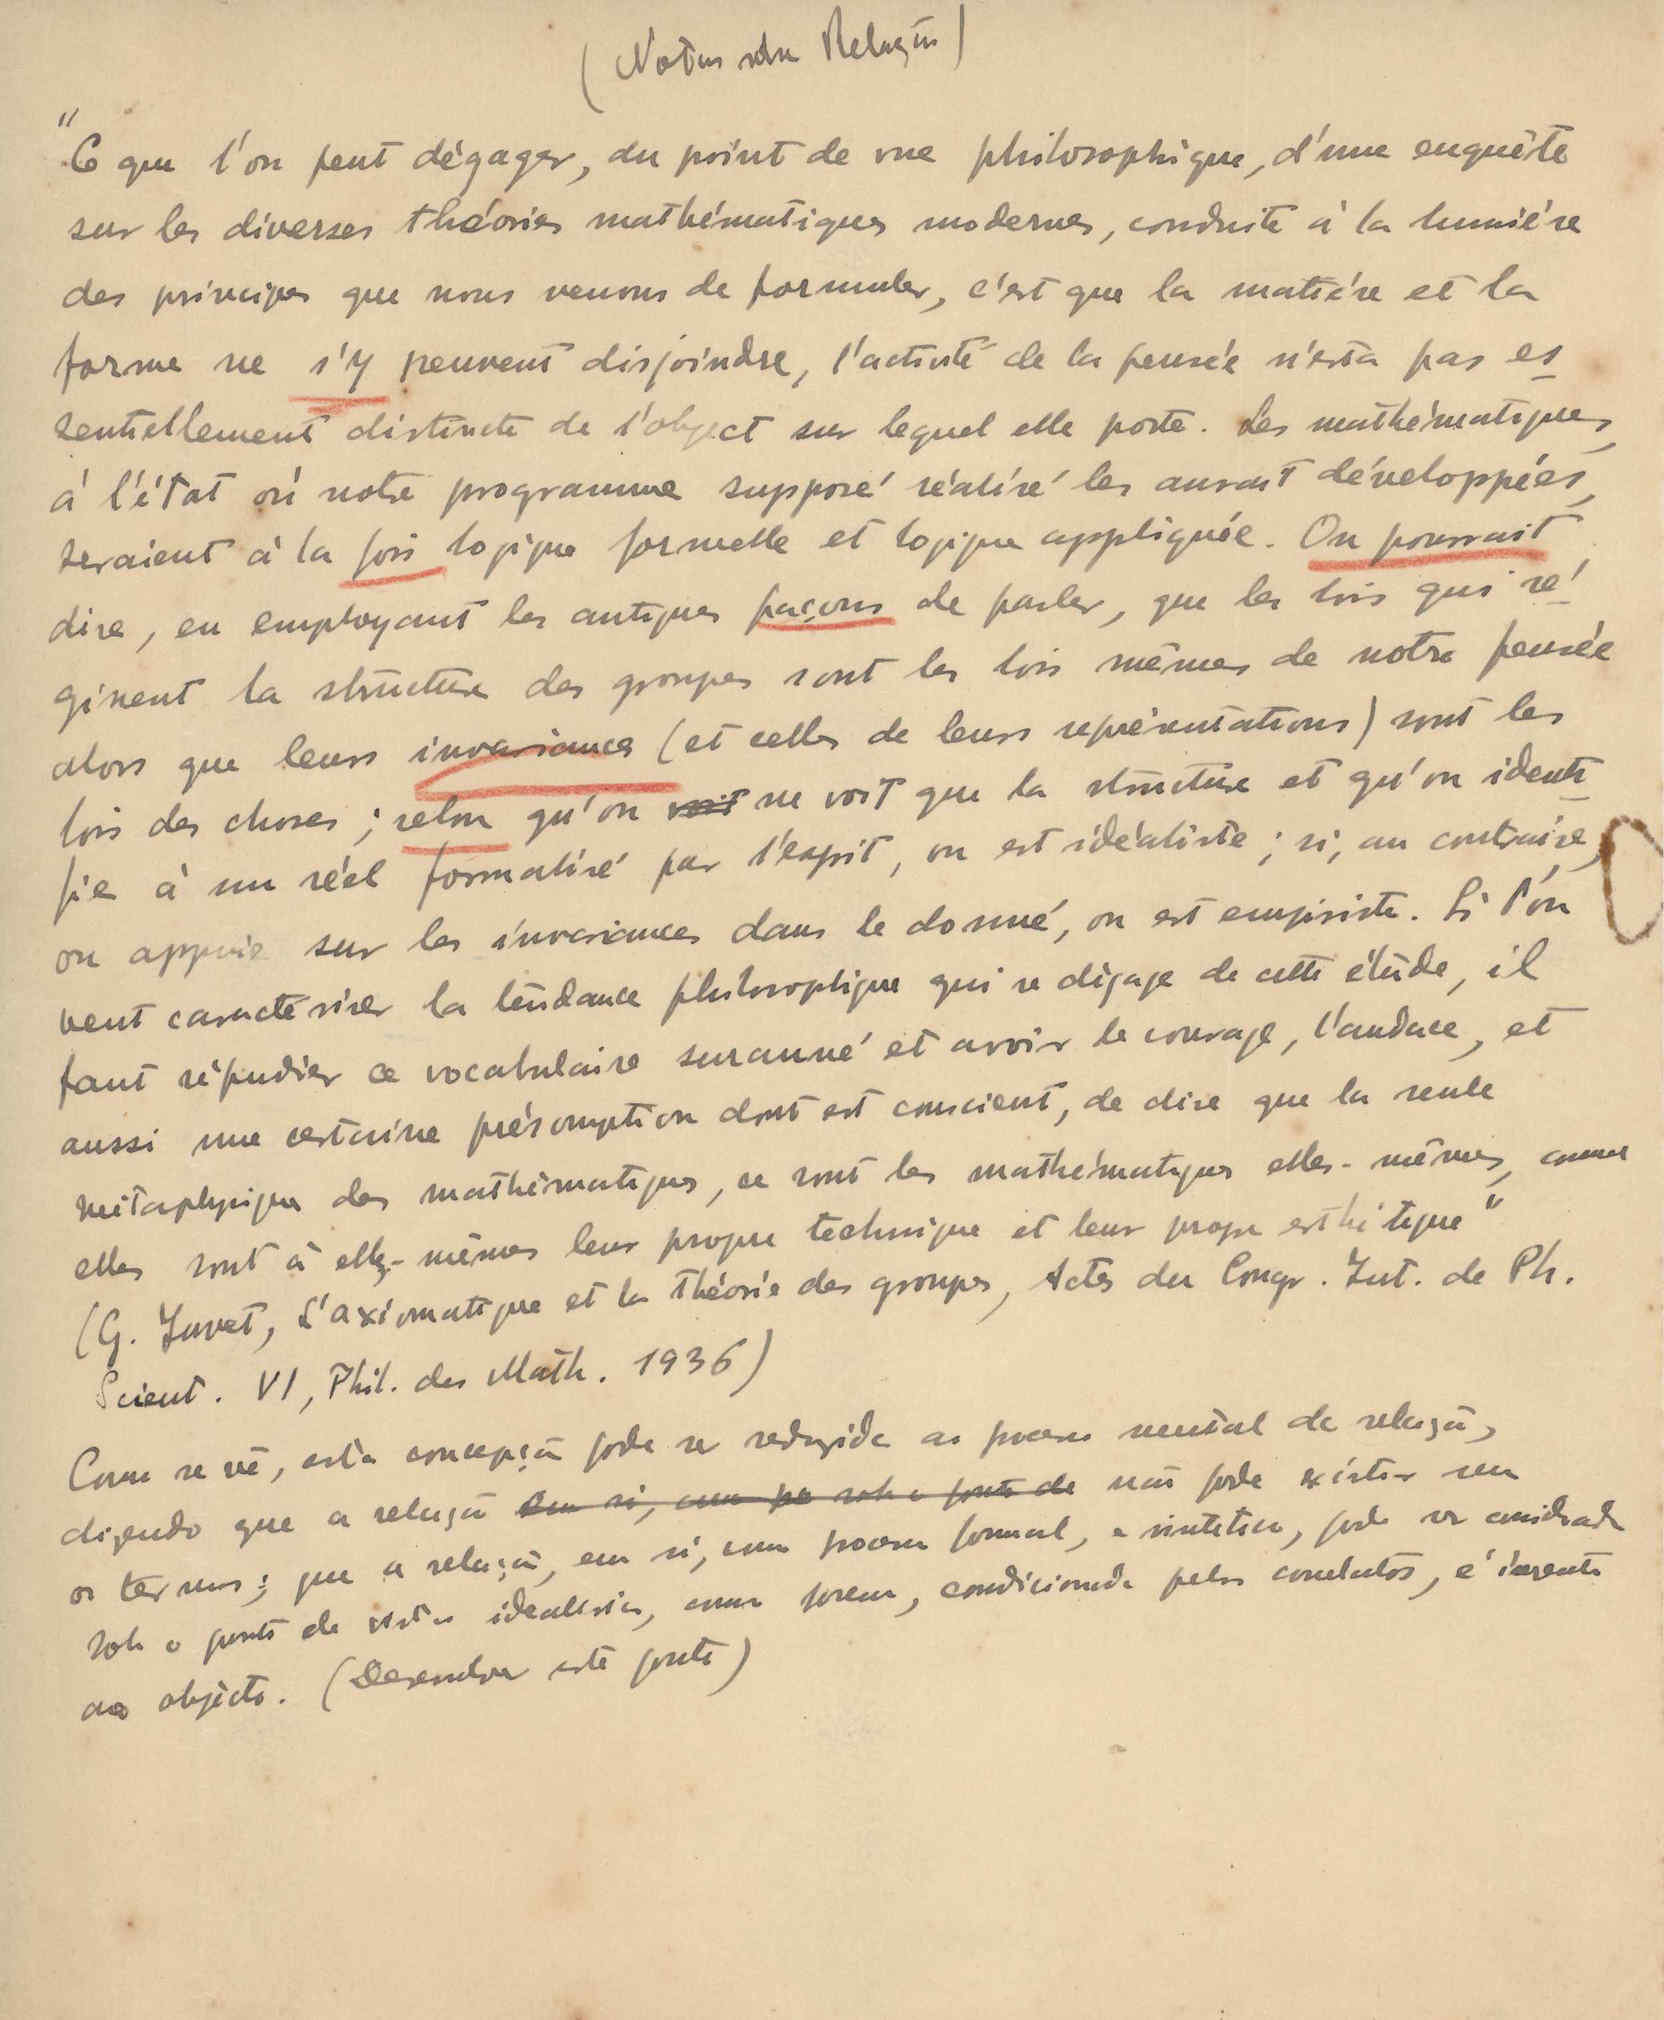 (Notas sobre Relação)
"Ce que l'on peut dégager, du point de vue philosophique, d'une enquête
sur les diverses théories mathématiques modernes, conduite à la lumiére
des principes que nous venons de formuler, c'est que la matiére et la
forme ne s'y peuvent disjoindre, l'activité de la pensée n'est pas es
sentiellement distincte de l'object sur lequel elle porte. Les mathématiques,
á l'état oú notre programme supposé réalisé les aurait développées,
seraient à la fois logique formelle et logique appliquée. On pourrait
dire, en employant les antiques façons de parler, que les lois qui ré
gissent la structure des groupes sont les lois mêmes de notre pensée
alors que leurs invariances (et celles de leurs représentations) sont les
lois des choses; selon qu'on voit ne voit que la structure et qu'on identi
fie à un réel formalisé par l'esprit, on est idéaliste; si, au contraire,
on appuie sur les invariances dans le donné, on est empiriste. Si l'on
veut caractériser la tendance philosophique qui se dégage de cette étude, il
faut répudier ce vocabulaire suranné et avoir le courage, l'audace, et
aussi une certaine présomption dont est conscient, de dire que la seule
métaphysique des mathématiques, ce sont les mathématiques elles-mêmes, comme
elles sont à elles-mêmes leur propre technique et leur propre esthétique"
(G. Juvet, L'axiomatique et la théorie des groupes, Actes du Congr. Int. de Ph.
Scient. VI, Phil. des Math. 1936)
Como se vê, esta concepção pode ser reduzida ao processo mental de relação,
dizendo que a relação em si, como sob o ponto de não pode existir sem
os termos; que a relação, em si, como processo formal, e sintetico, pode ser considerada
sob o ponto de vista idealista, como porem, condicionada pelos correlatos, é inerente
ao objècto. (Desenvolver este ponto)